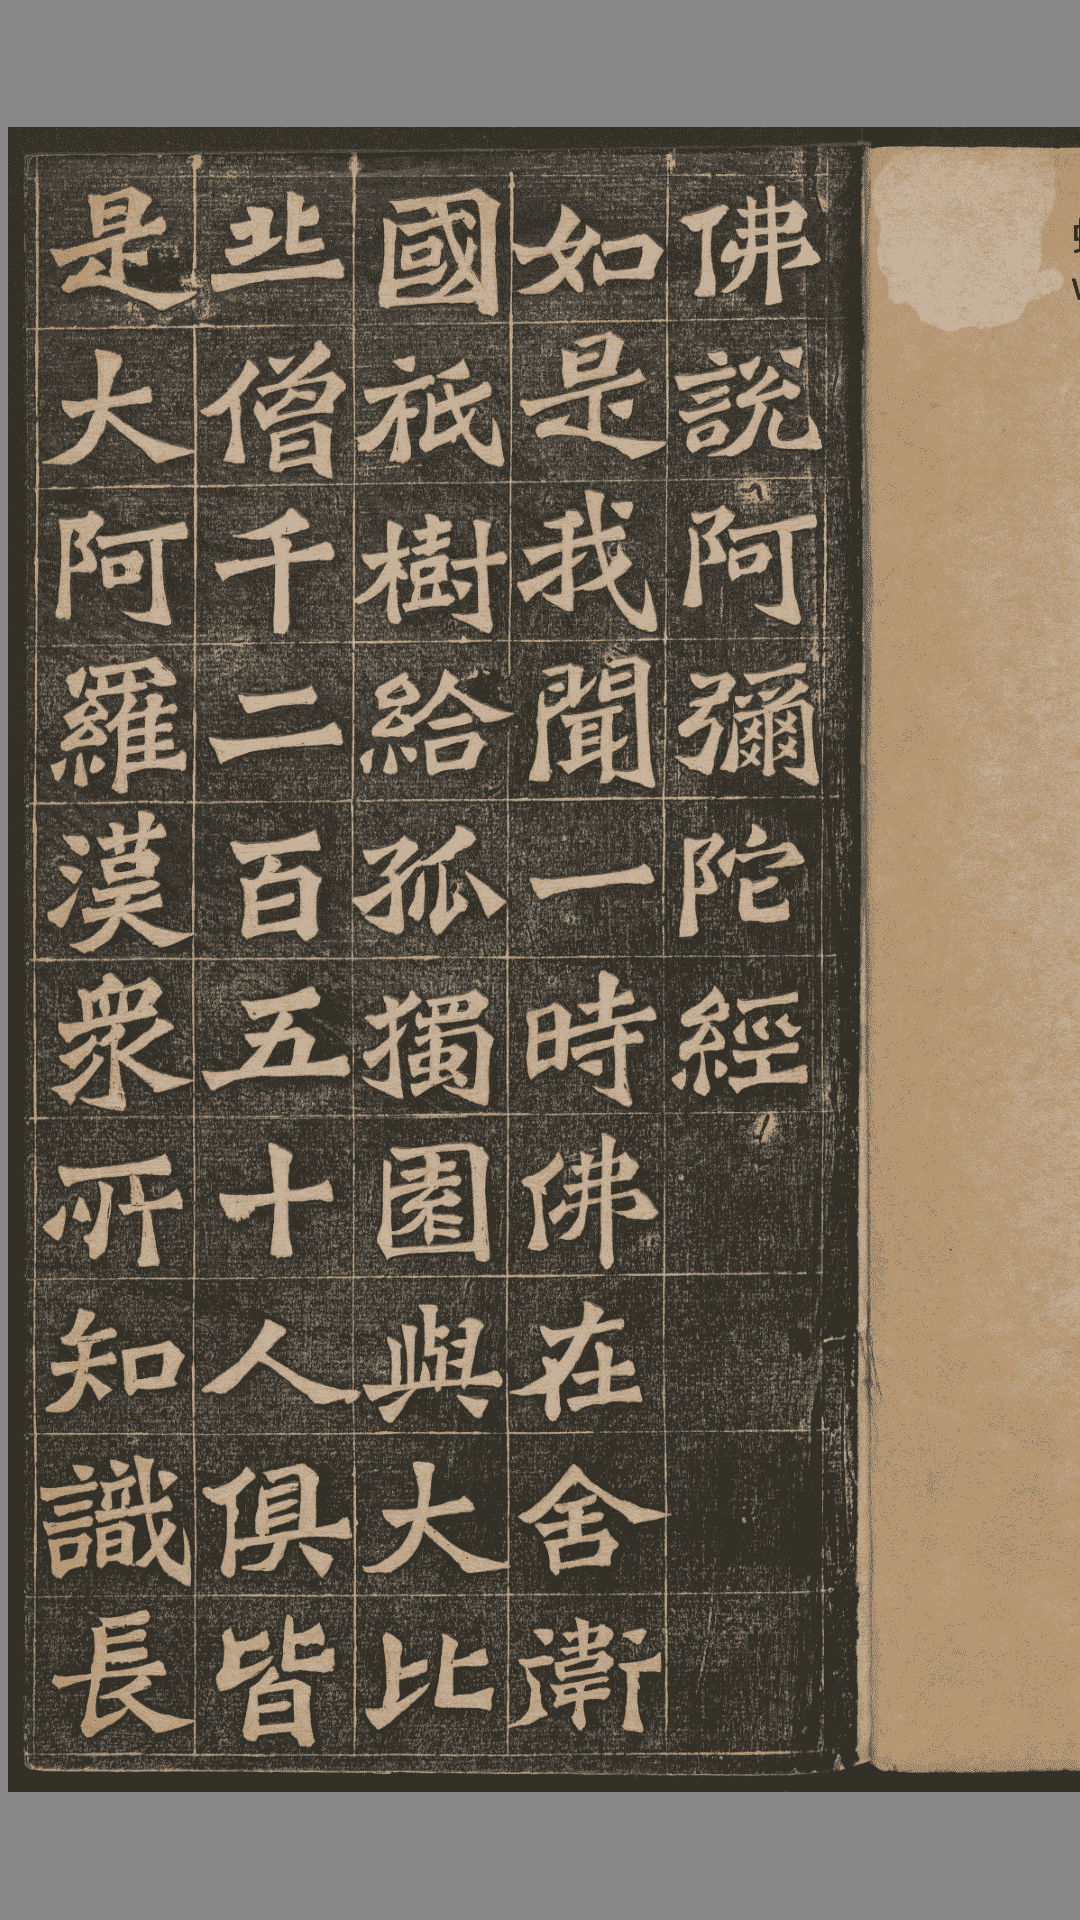 佛說阿彌陀經
如是我聞一時佛在舍衛
國祇樹給孤獨園與大比
丠僧千二百五十人俱皆
是大阿羅漢衆所知識長